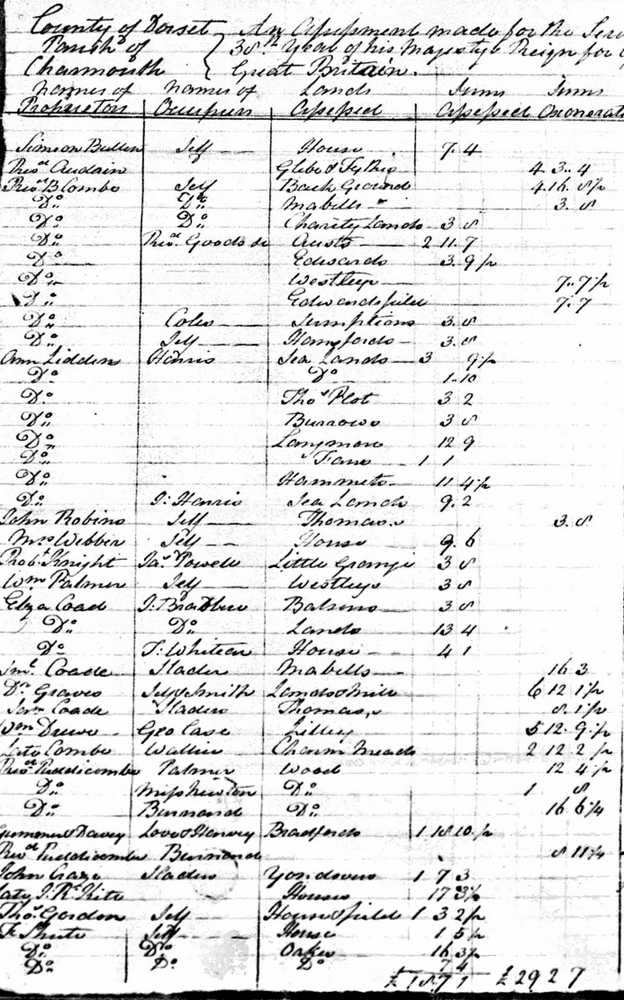 County of Dorset An Assessment made for the
Parish of 38th Year of his Majestys Reign for
Charmouth Great Britain.
Names of Names of Lands Sums Sums
Proprietors Occupiers Assessed Assessed Exonerat
Simeon Bullen Self House 7. 4
Revd. Audain Glebe & Tythes 4. 3. 4
Revd. B Combe Self Back Ground 4 16. 8 ½
Do Do Mabells 3. 8
Do Do Charity Lands 3. 8
Do Revd. Austs 2 11. 7
Do Edwards 3. 9 ½
Do 7. 7 ½
Do Edwardsfield 7. 7
Do Coles Sumptions 3. 8
Do Self 3. 8
Ann Lidden Harris Sea Lands 3 9 ½
Do Do 1. 10
Do Thos Plot 3 2
Do Burrows 3 8
Do Langmore 12 9
Do 1 1
Do Hammets 11 4 ½
Do J: Harris Sea Lands 9. 2
John Robins Self Thomas's 3. 8
Mrs Webber Self House 9. 6
Robt Knight Jas Powell Little Grange 3 8
Wm Palmer Self Westleys 3 8
Eliza Coad J: 3 8
Do Do Lands 13 4
Do House 4 1
Coade Slader Mabells 16 3
Dr Graves Self & Smith Lands & Mill 6 12 1 ½
Coade Sladers Thomas's 8 1 ½
Wm Drewe Geo Case Lilley 5 12. 9 ½
Late Combe Wallis Charm Meads 2 12 2 ½
Revd. Puddicombe Palmer Wood 12 4 ½
Do Miss Newton Do 1 8
Do Burnard Do 16 6 ¼
& Davey Love & Harvey Bradfords 1 18 10 ½
Revd Puddicombe Burnard 8 11 ¼
John Sladers Yondovers 1 7 3
Late J. Rs Houses 17 3 ½
Thos. Gordon Self Hounsfield 1 3 2 ½
Self House 1 5 ½
Do Do Oaks 16 3 ½
Do Do Do 7 4
£ 18 7 1 £ 29 2 7